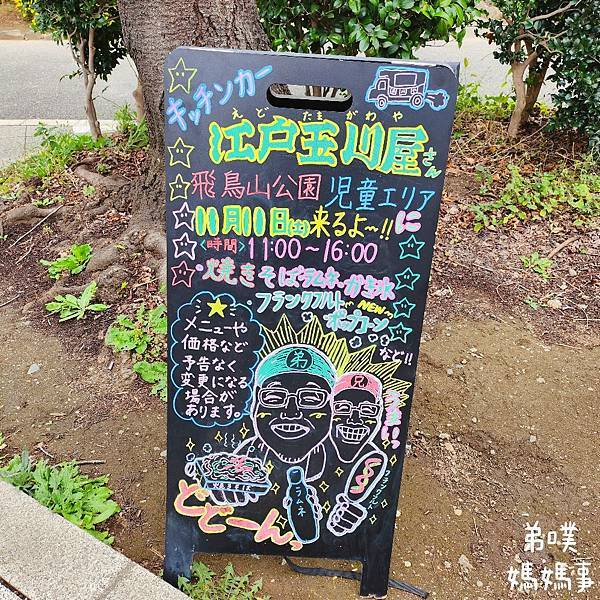 キッチンカー
えど たまがわや
江戸玉川屋さん
飛鳥山公園 児童エリアに
11月11日(土)来るよ〜!!
<時間>11:00〜16:00
・焼きそば・ラムネ・かき氷
・フランクフルト NEW ポップコーン
など!!
メニューや
価格など
予告なく
変更になる
場合が
あります。
弟
兄
うまいっ
ラムネ
フランクフルト
どどーんっ
弟噗
媽媽事